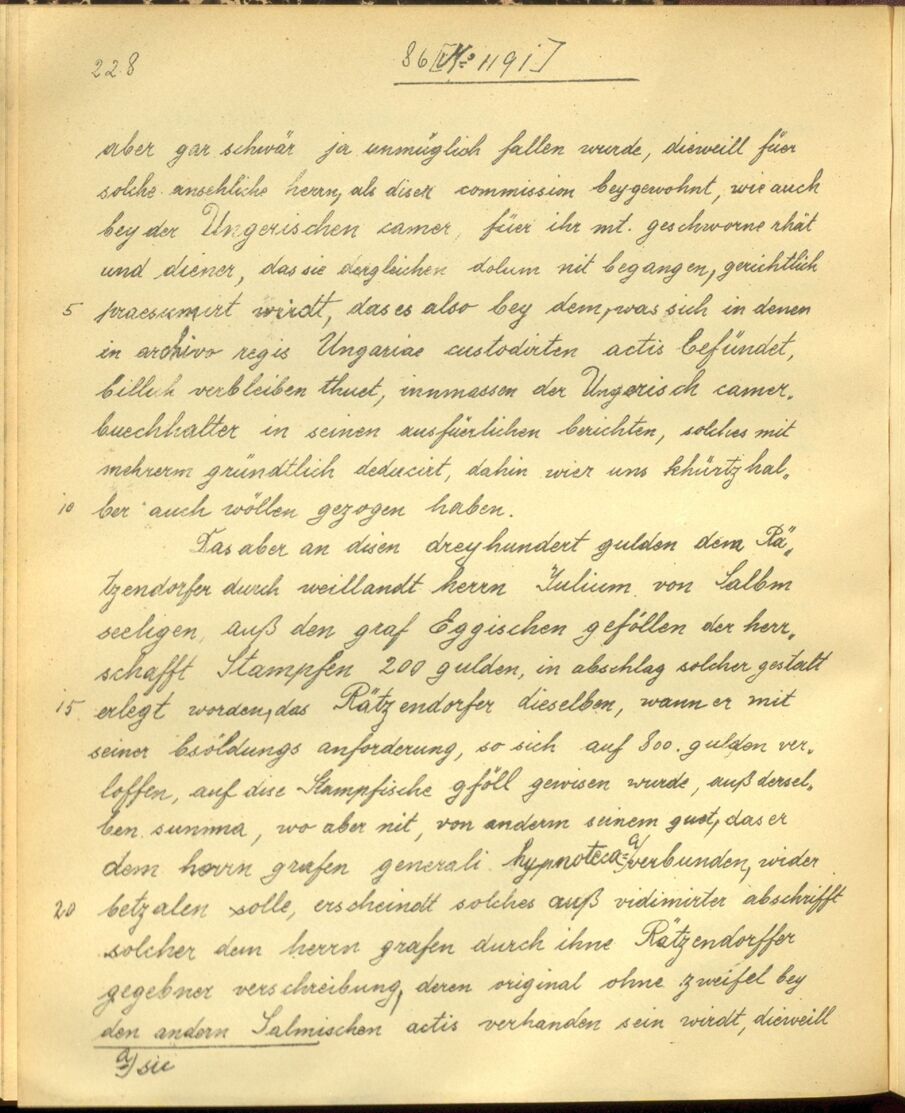 228
86 [No 1191]
aber gar schwär ja unmüglich fallen wurde, dieweill füer
solche ansehliche herrn, als diser commission beygewohnt, wie auch
bey der Ungerischen camer, füer ihr mt. geschworne rhät
und diener, das sie dergleichen dolum nit begangen, gerichtlich
5 praesumirt wirdt, das es also bey dem, was sich in denen
in archivo regis Ungariae custodirten actis befündet,
billich verbleiben thuet, innmassen der Ungerisch camer„
buechhalter in seinen ausfüerlichen berichten, solches mit
mehrerm gründtlich deducirt, dahin wier uns khürtz hal„
10 ber auch wöllen gezogen haben.
Das aber an disen dreyhundert gulden dem Rä„
tzendorfer durch weillandt herrn Julium von Salbm
seeligen, auß den graf Eggischen geföllen der herr„
schafft Stampfen 200 gulden, in abschlag solcher gestalt
15 erlegt worden, das Rätzendorfer dieselben, wann er mit
seiner bsöldungs anforderung, so sich auf 800. gulden ver„
loffen, auf dise Stampfische gföll gewisen wurde, auß dersel„
ben summa, wo aber nit, von anderm seinem guet, das er
dem herrn grafen generali hypnoteca a) verbunden, wider
20 betzalen solle, erscheindt solches auß vidimirter abschrifft
solcher dem herrn grafen durch ihne Rätzendorffer
gegebner verschreibung, deren original ohne zweifel bey
den andern Salmischen actis verhanden sein wirdt, dieweill
a) sic